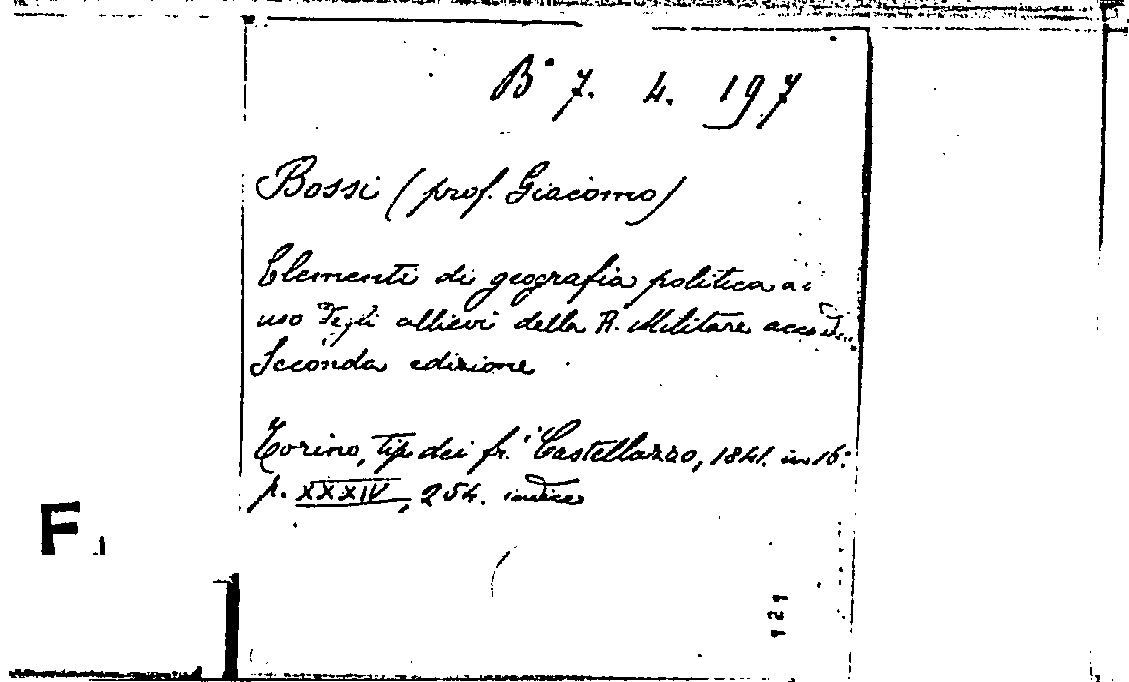 B° 7. 4. 197
Bossi (prof. Giacomo)
Elementi di geografia politica a
uso degli allievi della R. Militare accad.
Seconda edizione
Torino, tip dei fr.i Castellazzo, 1841. in 16°
p. XXXIV, 254. indice
F
121